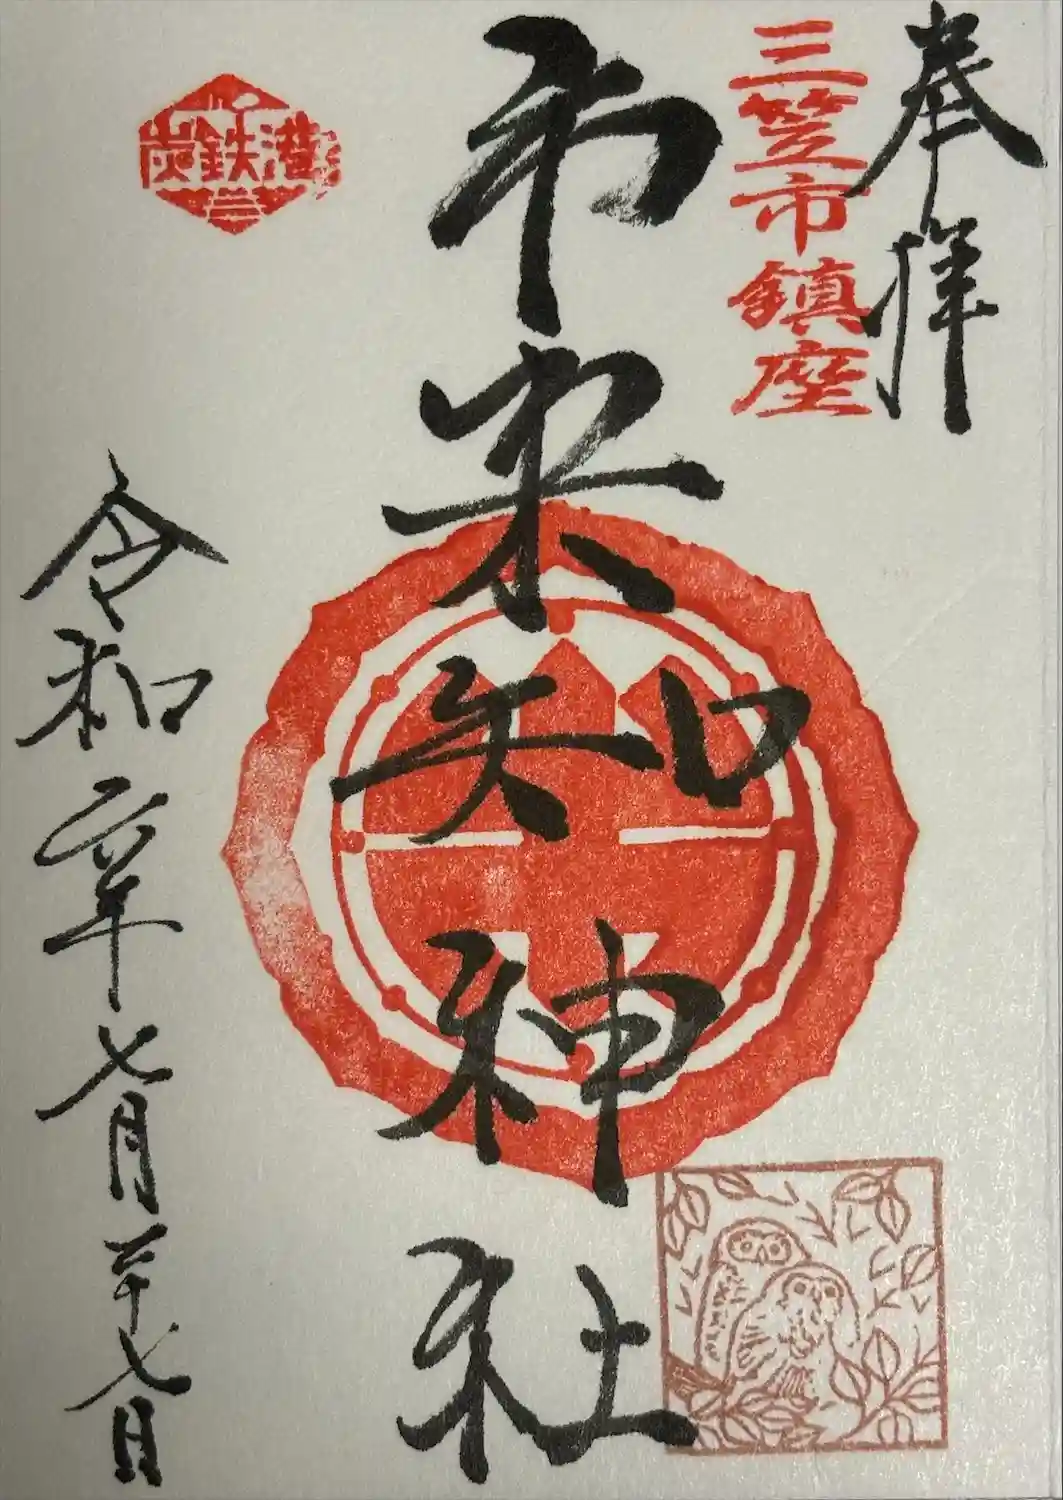 奉拝
三笠市鎮座
市来知神社
炭鉄港
令和二年七月二十七日